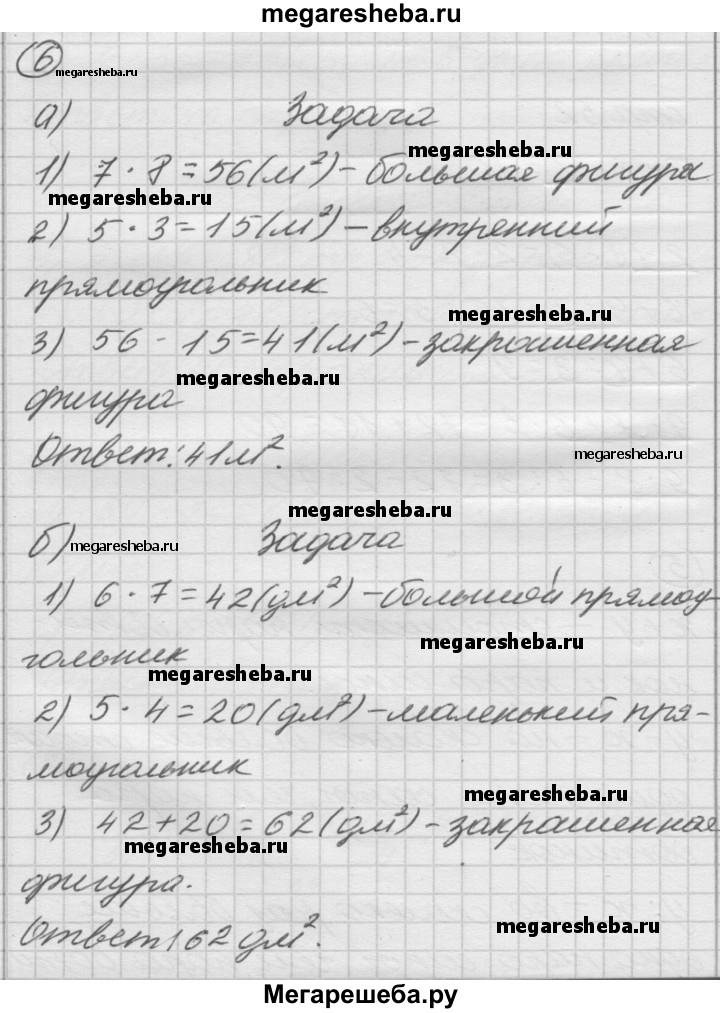 megaresheba.ru
6 megaresheba.ru
а) Задача
megaresheba.ru
1) 7 · 8 = 56 (м²) - большая фигура
megaresheba.ru
2) 5 · 3 = 15 (м²) - внутренний
прямоугольник
megaresheba.ru
3) 56 - 15 = 41 (м²) - закрашенная
megaresheba.ru
фигура
Ответ: 41 м².
megaresheba.ru
megaresheba.ru
б) megaresheba.ru Задача
1) 6 · 7 = 42 (дм²) - большой прямоу-
megaresheba.ru
гольник
megaresheba.ru
2) 5 · 4 = 20 (дм²) - маленький пря-
моугольник
megaresheba.ru
3) 42 + 20 = 62 (дм²) - закрашенная
megaresheba.ru
фигура.
Ответ: 62 дм².
megaresheba.ru
Мегарешеба.ру